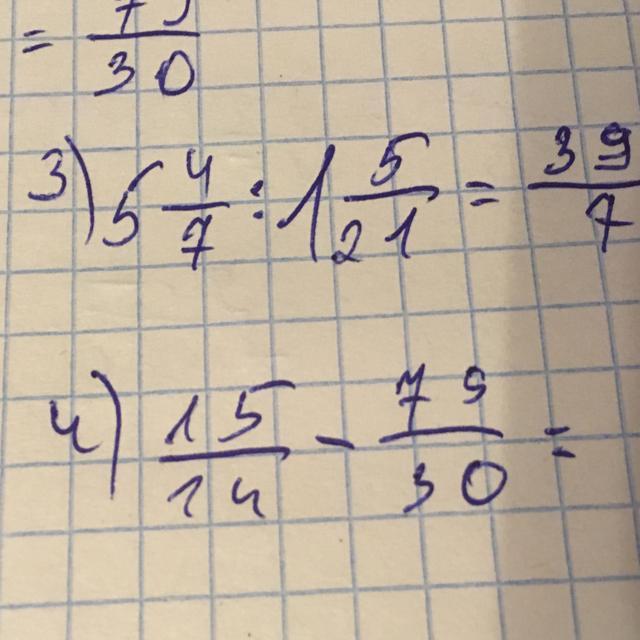 = 79/30
3) 5 4/7 : 1 5/21 = 39/7
4) 15/14 - 79/30 =